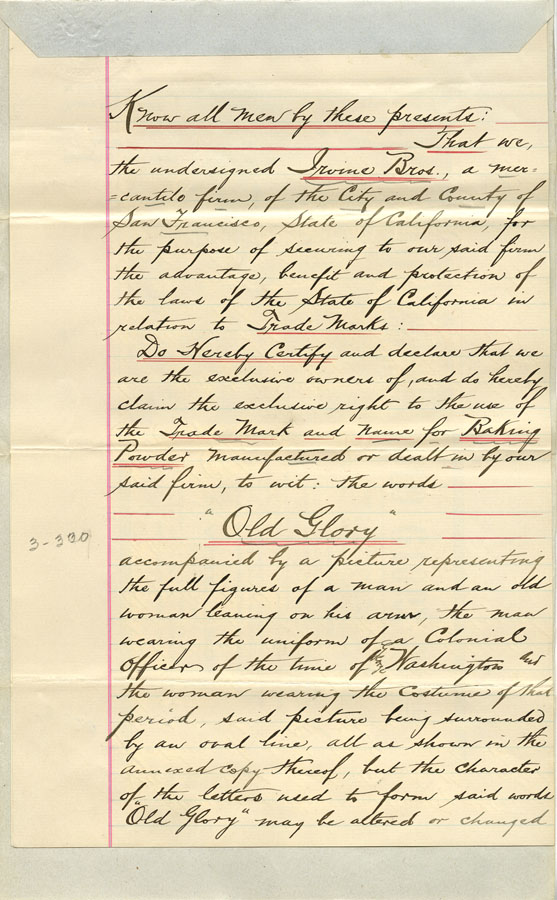 Know all men by these presents:
That we,
the undersigned Irvine Bros., a mer=
=cantile firm, of the City and County of
San Francisco, State of California, for
the purpose of securing to our said firm
the advantage, benefit and protection of
the laws of the State of California in
relation to Trade Marks:
Do Hereby Certify and declare that we
are the exclusive owners of, and do hereby
claim the exclusive right to the use of
the Trade Mark and name for Baking
Powder manufactured or dealt in by our
said firm, to wit: the words
"Old Glory"
3-330
accompanied by a picture representing
the full figures of a man and an old
woman leaning on his arm, the man
wearing the uniform of a Colonial
Officer of the time of Washington and
the woman wearing the Costume of that
period, said picture being surrounded
by an oval line, all as shown in the
annexed copy thereof, but the character
of the letters used to form said words
"Old Glory" may be altered or changed